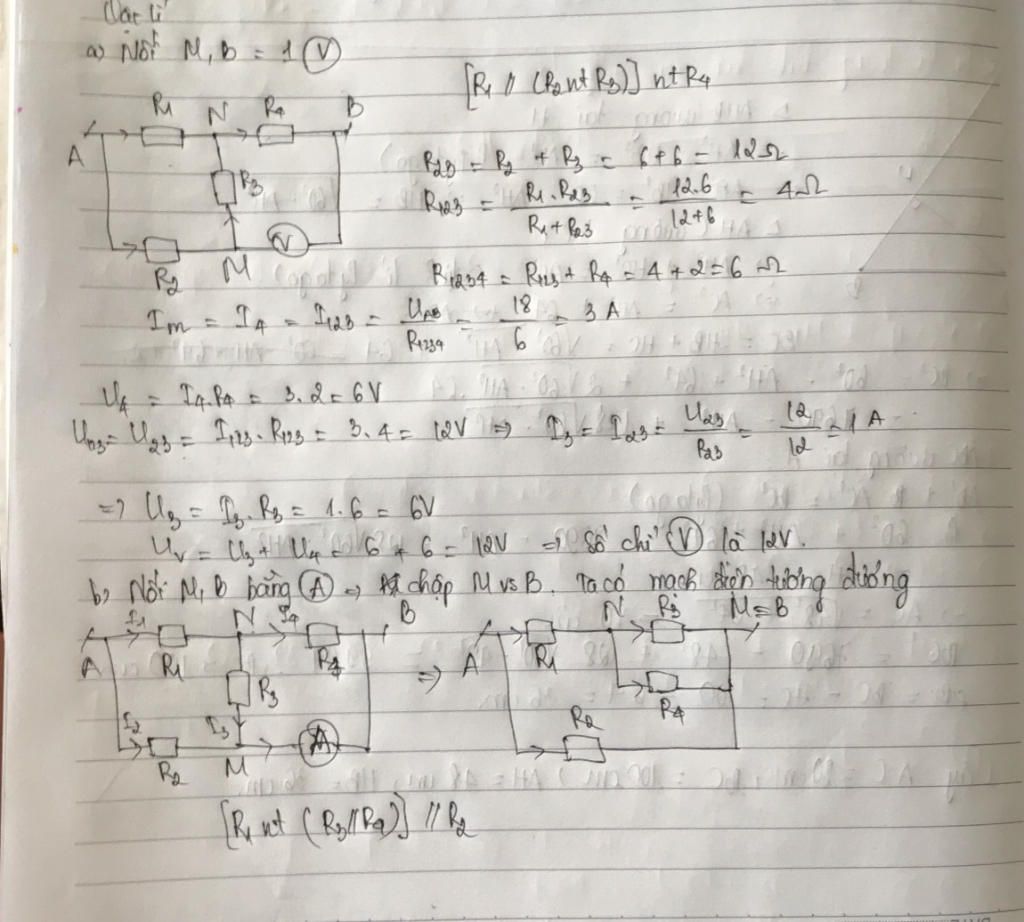 Vật lí
a) Nối M, B = 1 (V)
[R1 // (R2 nt R3)] nt R4
R1 N R4 B
A
R3
V
R2 M
R23 = R2 + R3 = 6+6 = 12Ω
R123 = R1.R23 / R1+R23 = 12.6 / 12+6 = 4Ω
R1234 = R123 + R4 = 4 + 2 = 6 Ω
Im = I4 = I123 = UAB / R1234 = 18 / 6 = 3 A
U4 = I4.R4 = 3.2 = 6V
U123 = U23 = I123.R123 = 3.4 = 12V => I3 = I23 = U23 / R23 = 12 / 12 = 1 A
=> U3 = I3.R3 = 1.6 = 6V
UV = U3 + U4 = 6 + 6 = 12V => Số chỉ (V) là 12V.
b) Nối M, B bằng (A) => chập M vs B. Ta có mạch điện tương đương
I1 N I4 B
A R1 R4
R3
I2 I3 A
R2 M
=>
N R3 M≡B
A R1
R4
R2
[R1 nt (R3//R4)] // R2